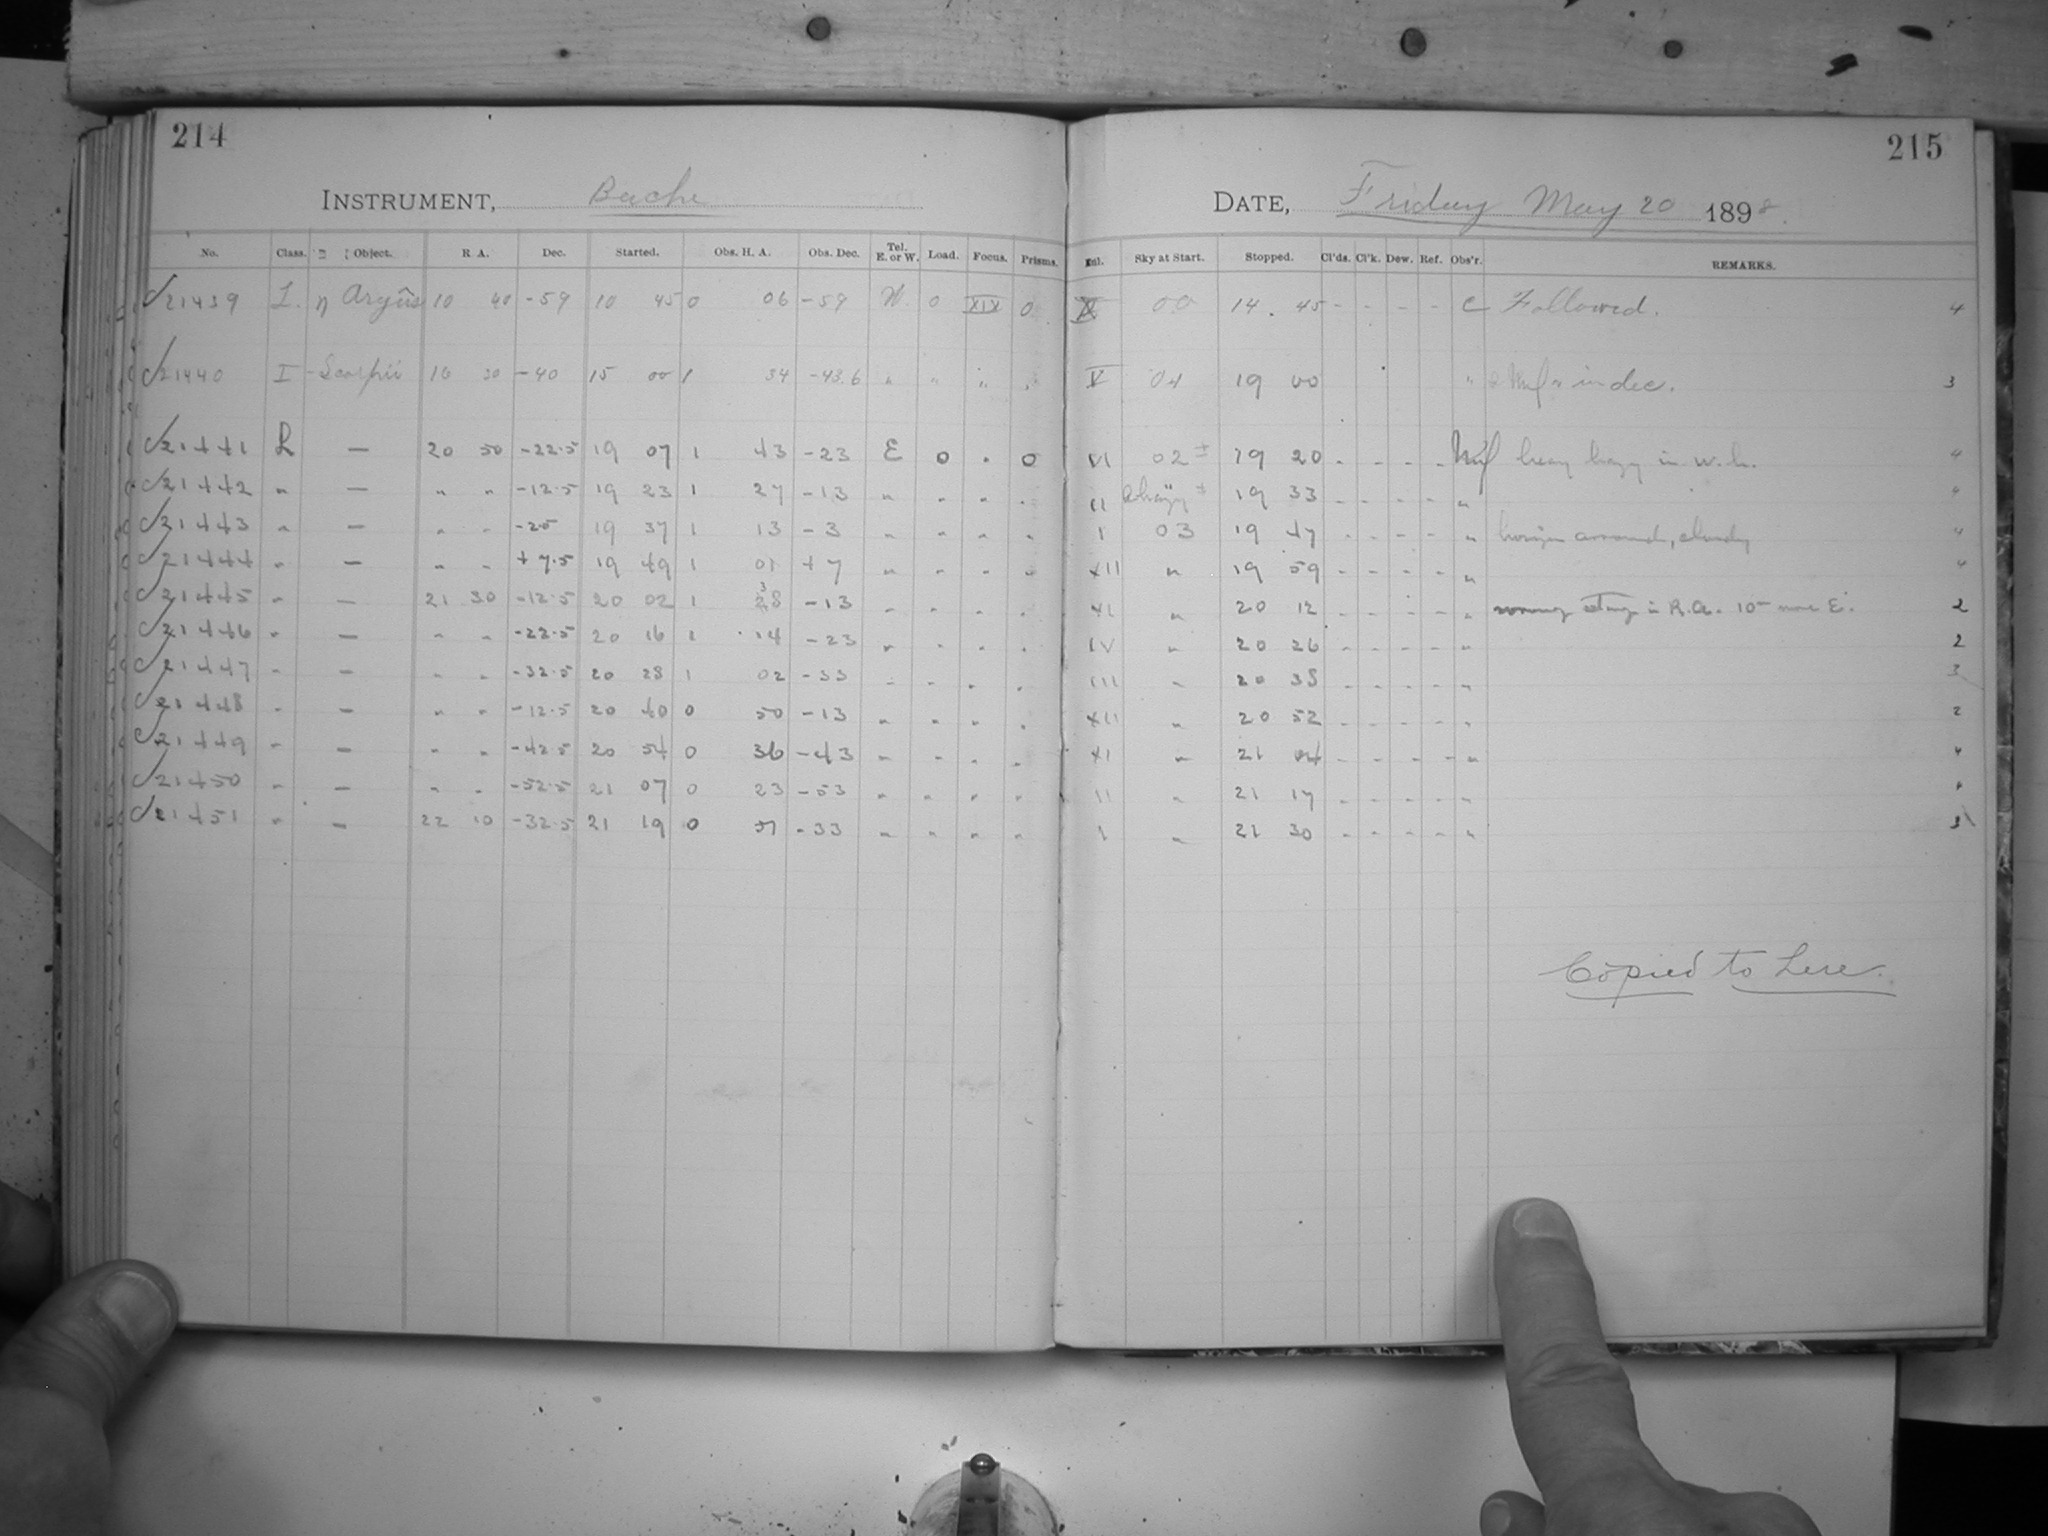 214
INSTRUMENT, Bache
No. Class. Object. R. A. Dec. Started. Obs. H. A. Obs. Dec. Tel. E. or W. Load. Focus. Prisms.
21439 I. η Argûs 10 40 -59 10 45 0 06 -59 W. 0 XIX 0
21440 I - Scorpii 16 30 -40 15 00 1 34 -43.6 " " " "
21441 L — 20 50 -22.5 19 07 1 43 -23 E 0 . 0
21442 " — " " -12.5 19 23 1 27 -13 " " " .
21443 " — " " -2.5 19 37 1 13 -3 " " " "
21444 " — " " +7.5 19 49 1 01 +7 " " " "
21445 " — 21 30 -12.5 20 02 1 28 -13 " " " "
21446 " — " " -22.5 20 16 1 14 -23 " " " "
21447 " — " " -32.5 20 28 1 02 -33 " " " "
21448 " — " " -12.5 20 40 0 50 -13 " " " "
21449 " — " " -42.5 20 54 0 36 -43 " " " "
21450 " — " " -52.5 21 07 0 23 -53 " " " "
21451 " — 22 10 -32.5 21 19 0 51 -33 " " " "
215
DATE, Friday May 20 1898.
Sky at Start. Stopped. Cl'ds. Cl'k. Dew. Ref. Obs'r. REMARKS.
00 14. 45 - - - - C Followed. 4
V 04 19 00 " in dec. 3
VI 02± 19 20 - - - - hazy in w. h. 4
II 19 33 - - - - " 4
I 03 19 47 - - - - " horizon around, cloudy "
XII " 19 59 - - - - " 4
XI " 20 12 - - - - " wrong setting in R.A. 10m more E. 2
IV " 20 26 - - - - " 2
III " 20 38 - - - - " 3
XII " 20 52 - - - - " 2
XI " 21 04 - - - - " 4
II " 21 17 - - - - "
I " 21 30 - - - - " 3
Copied to here.